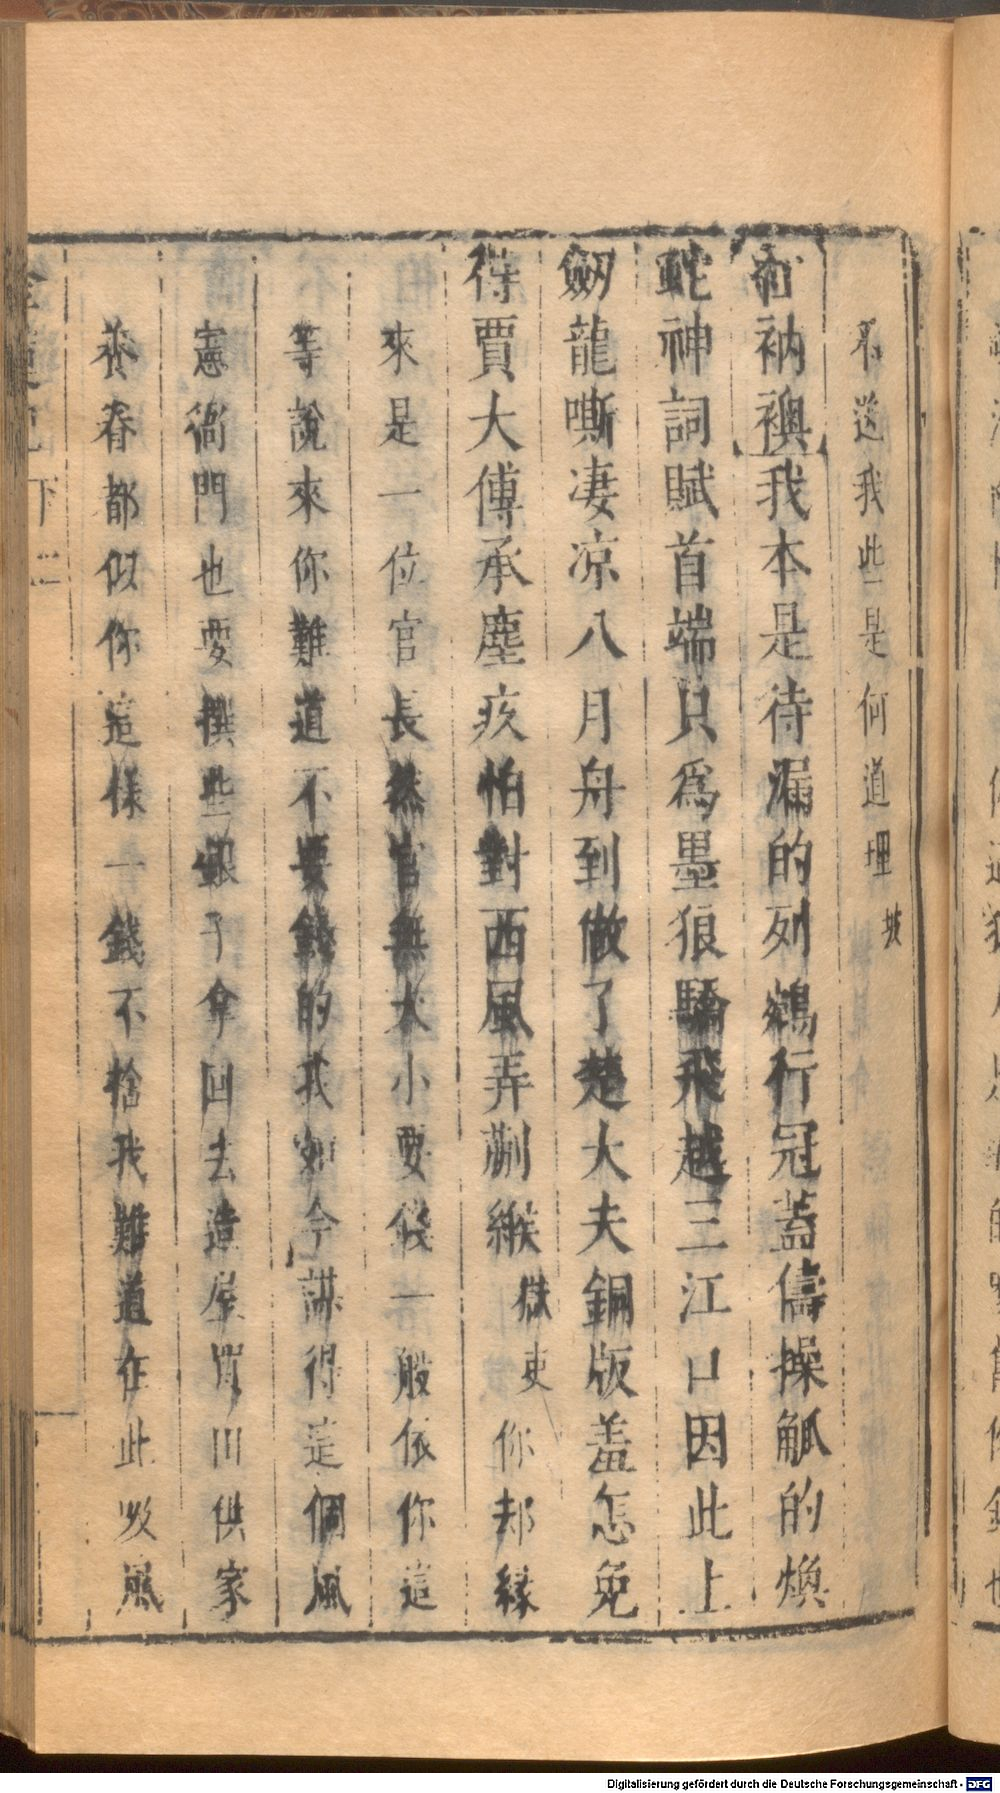 不送我些是何道理 坡
衲襖我本是待漏的列鵷行冠蓋儔操觚的煥
神詞賦首端只爲墨狼驕飛越三江口因此上
劒龍嘶凄凉八月舟到做了楚大夫銅版羞怎免
得賈大傅承塵疚怕對西風弄蒯緱 獄吏 你却緣
來是一位官長然官無大小要錢一般依你這
等說來你難道不要錢的我如今謀得這個風
憲衙門也要撰些銀子拿回去造屋買田供家
養眷都似你這樣一錢不捨我難道在此吸風
下
Digitalisierung gefördert durch die Deutsche Forschungsgemeinschaft - DFG